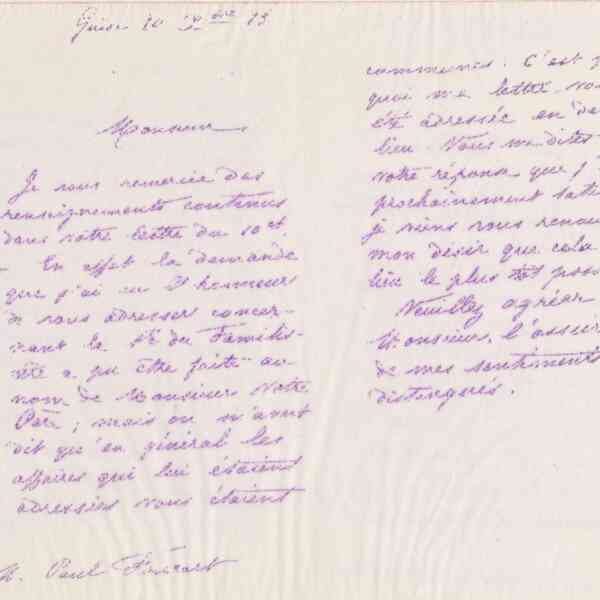 Guise 10 9bre 93
Monsieur,
Je vous remercie des
renseignements contenus
dans votre lettre du 10 ct.
- En effet la demande
que j'ai eu l'honneur
de vous adresser concer-
nant la Sté du Familis-
tère a pu être faite au
nom de Monsieur Votre
Père ; mais on m'avait
dit qu'en général les
affaires qui lui étaient
adressées vous étaient
M. Paul
communes. C'est
quoi ma lettre
été adressée en
lieu. Vous me dites
votre réponse que j'
prochainement
je viens vous
mon désir que cela
lieu le plus tôt
Veuillez agréer
Monsieur,
de mes sentiments
distingués.